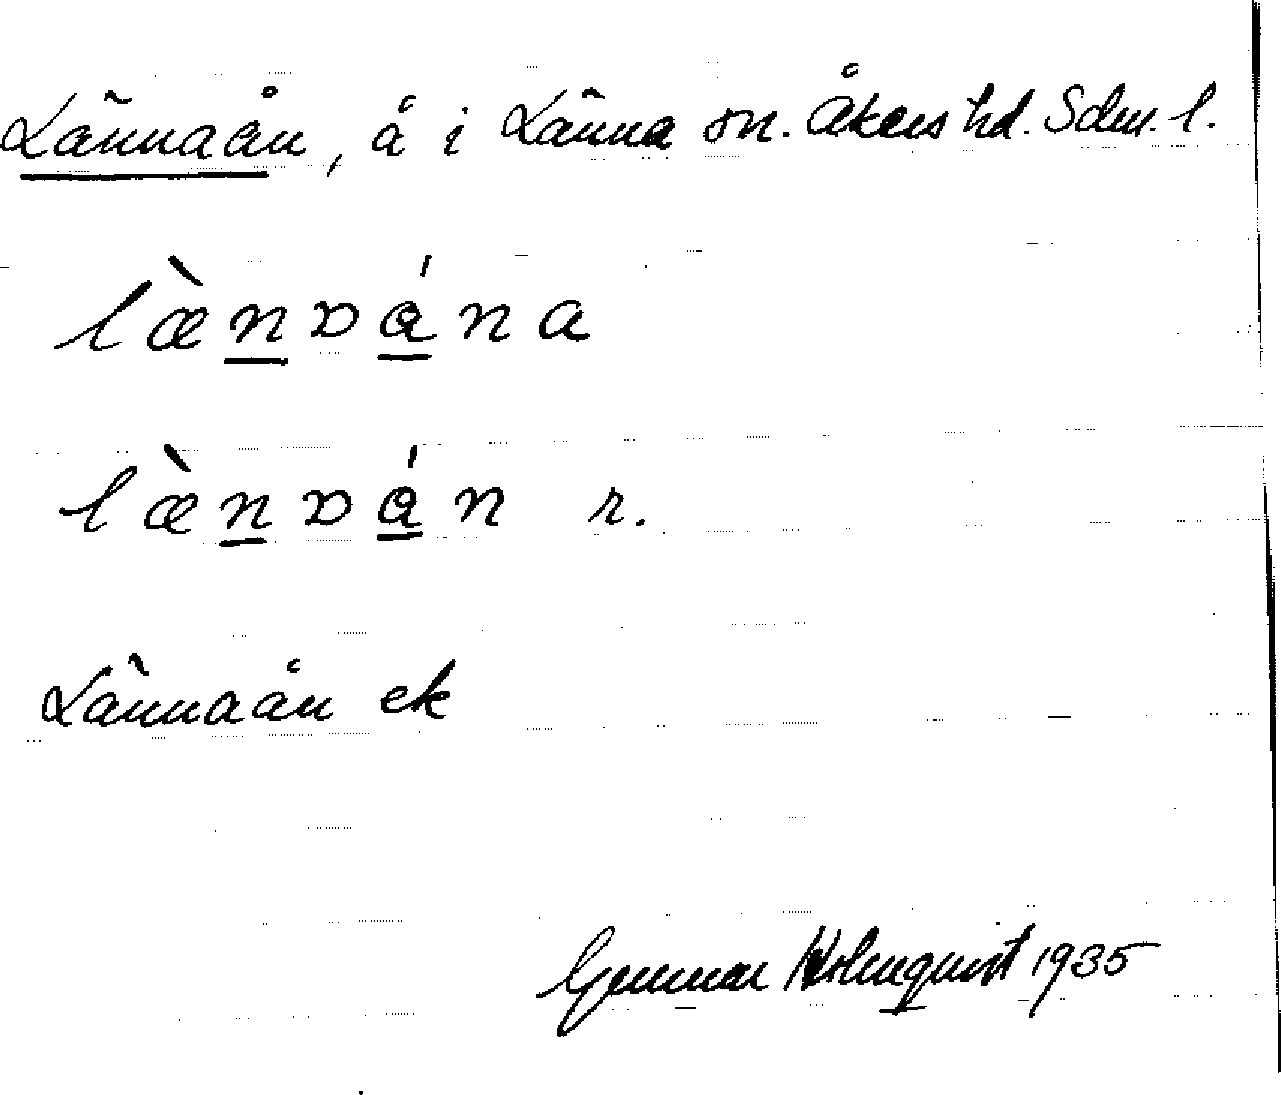 Lännaån, å i Länna sn. Åkers hd. Sdm. l.
læ̀nvána
læ̀nván r.
Lännaån ek
Gunnar Holmquist 1935